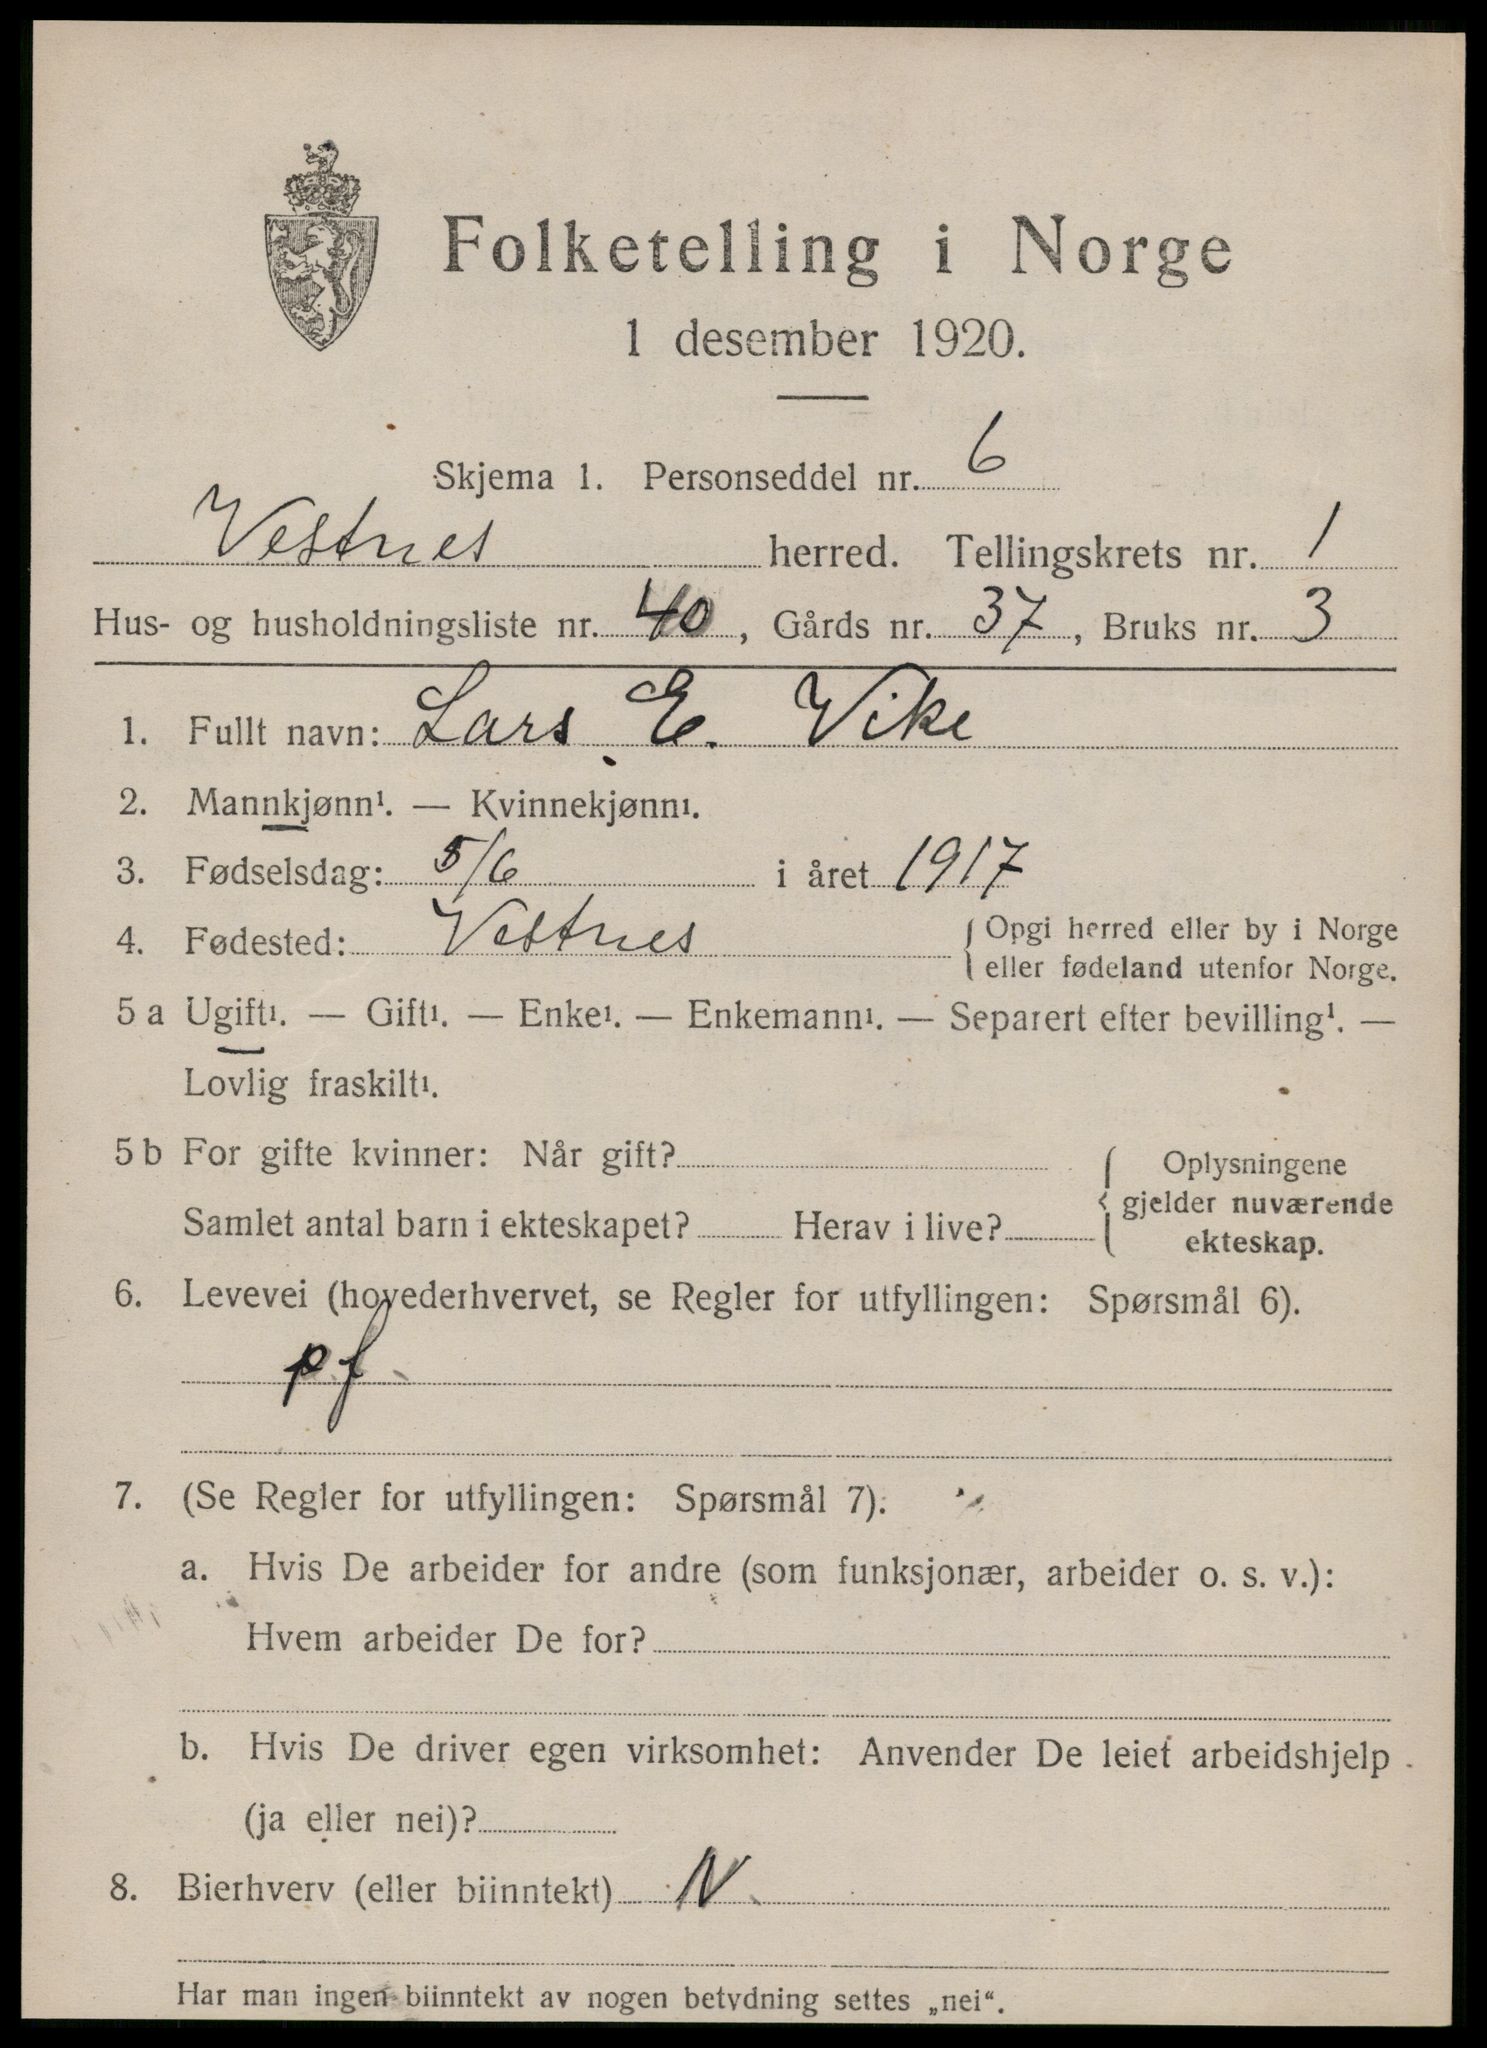 Folketelling i Norge
1 desember 1920.
Skjema 1. Personseddel nr. 6
Vestnes herred. Tellingskrets nr. 1
Hus- og husholdningsliste nr. 40, Gårds nr. 37, Bruks nr. 3
1. Fullt navn: Lars E. Vike
2. Mannkjønn¹. — Kvinnekjønn¹.
3. Fødselsdag: 5/6 i året 1917
4. Fødested: Vestnes { Opgi herred eller by i Norge
eller fødeland utenfor Norge.
5 a Ugift¹. — Gift¹. — Enke¹. — Enkemann¹. — Separert efter bevilling¹. —
Lovlig fraskilt¹.
5 b For gifte kvinner: Når gift?
Samlet antal barn i ekteskapet? Herav i live?
{ Oplysningene
gjelder nuværende
ekteskap.
6. Levevei (hovederhvervet, se Regler for utfyllingen: Spørsmål 6).
p.f.
7. (Se Regler for utfyllingen: Spørsmål 7).
a. Hvis De arbeider for andre (som funksjonær, arbeider o. s. v.):
Hvem arbeider De for?
b. Hvis De driver egen virksomhet: Anvender De leiet arbeidshjelp
(ja eller nei)?
8. Bierhverv (eller biinntekt) N.
Har man ingen biinntekt av nogen betydning settes „nei“.